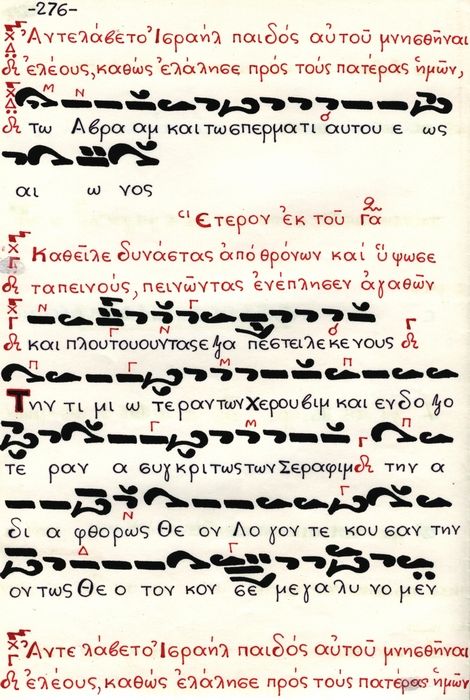 -276-
Ἀντελάβετο Ἰσραήλ παιδός αὐτοῦ μνησθῆναι
ἐλέους, καθώς ἐλάλησε πρός τούς πατέρας ἡμῶν,
τω Αβρα αμ και τω σπερματι αυτου ε ως
αι ω νος
Ετερον ἐκ τοῦ Γα
Καθεῖλε δυνάστας ἀπό θρόνων καί ὕψωσε
ταπεινούς, πεινῶντας ἐνέπλησεν ἀγαθῶν
και πλουτουουντας ε ξα πεστειλε κενους
Την τι μι ω τεραν των Χερουβιμ και ενδο ξο
τε ραν α συγκριτως των Σεραφιμ την α
δι α φθορως Θε ον Λο γον τε κου σαν την
ον τως Θε ο τοκον σε με γα λυ νο μεν
Ἀντε λάβετο Ἰσραήλ παιδός αὐτοῦ μνησθῆναι
ἐλέους, καθώς ἐλάλησε πρός τούς πατέρας ἡμῶν